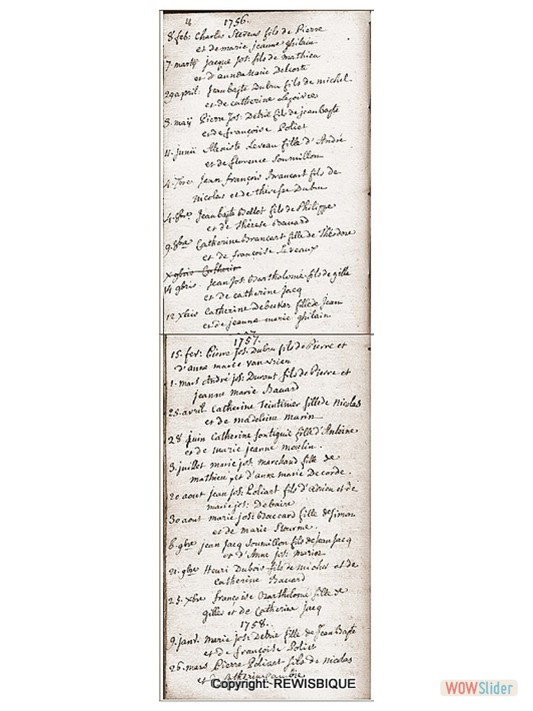 4 1756.
8 feb: Charles Stevens fils de Pierre
et de marie jeanne ghilain
7 martij jacque jos: fils de mathieu
et d'anne Marie Delcorte
29 april. Jean bapte Dubru fils de michel
et de catherine
3. maij Pierre Jos: Debrie fils de jean bapte
et de françoise Poliet
11. junii Alexiste Leveau fille d'André
et de florence Soumillon
4. 7bre Jean François Brancart fils de
Nicolas et de thérèse Dubru
4. 8bre Jean bapte Bellot fils de Philippe
et de Thérèse Bavard
9. 8bre Catherine Brancart fille de Théodore
et de françoise Leveaux
14 9bris Jean Jos: Bartholomé fils de gille
et de catherine Jacq
12 xbris Catherine Debecker fille de Jean
et de jeanne marie ghilain
1757.
15. fev: Pierre Jos: Dubru fils de Pierre et
d'anne marie
1. mars André jos: Durant fils de Pierre et
jeanne Marie Bavard
25. avril Catherine Teintinier fille de Nicolas
et de Madeleine Marin
28 juin Catherine fontignie fille d'Antoine
et de marie jeanne moulin.
3. juillet marie jos: marchand fille de
mathieu et d'anne marie Decorde.
20 aout jean jos: Poliart fils d'Adrien et de
marie jos: Debaire
30 aout marie jos: Boccard fille de Simon
et de marie
6. 9bre jean Jacq Soumillon fils de Jean Jacq
et d'Anne jos: marin
21. 9bre Henri Dubois fils de michel et de
catherine Bavard
25. xbre françoise Bartholomé fille de
gilles et de Catherine Jacq
1758.
9. janv. marie jos: Debrie fille de Jean Bapte
et de françoise Poliet
26. mars Pierre Policart fils de nicolas
et de
Copyright: REWISBIQUE
WOWSlider